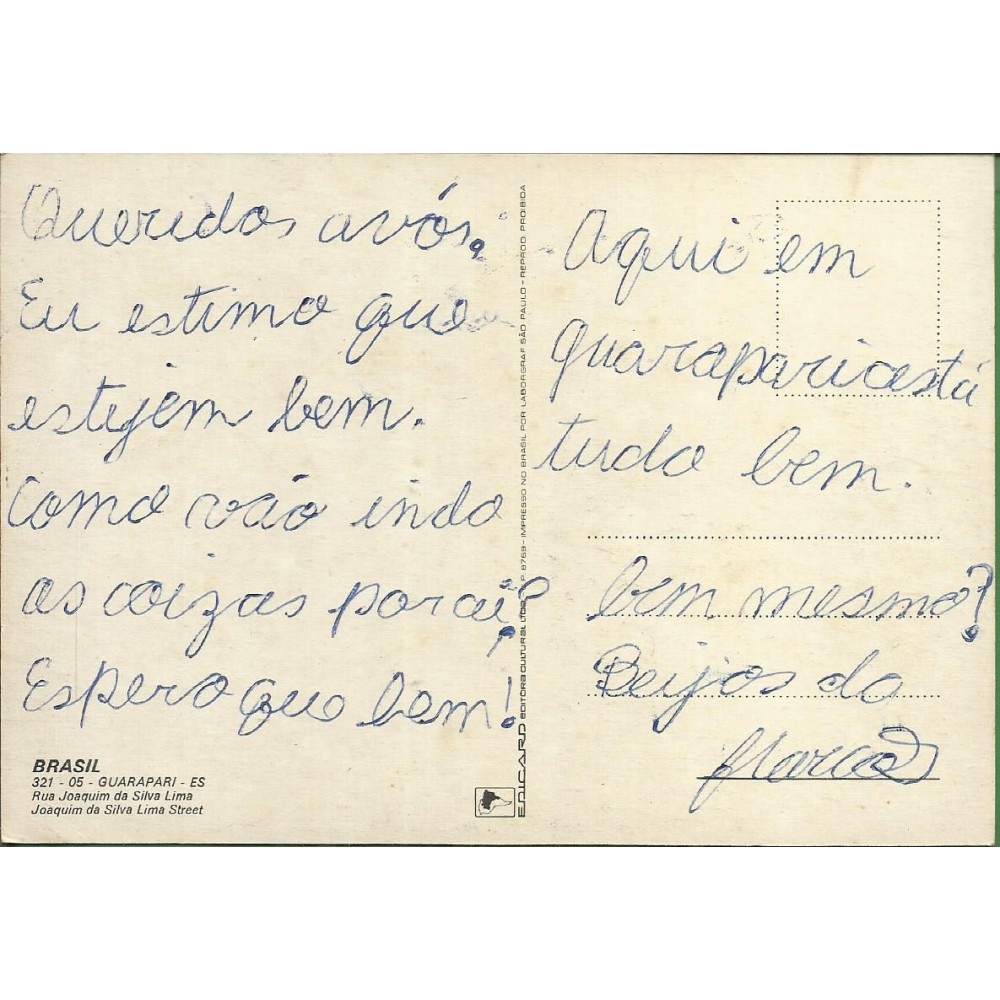 Queridos avós,
Eu estimo que
estejem bem.
Como vão indo
as coizas por ai?
Espero que bem!
BRASIL
321 - 05 - GUARAPARI - ES
Rua Joaquim da Silva Lima
Joaquim da Silva Lima Street
EDICARD EDITORA CULTURAL LTDA. P 8769 - IMPRESSO NO BRASIL POR LABORGRAF SÃO PAULO - REPROD. PROIBIDA
Aqui em
guarapari está
tudo bem.
bem mesmo?
Beijos do
Marcos